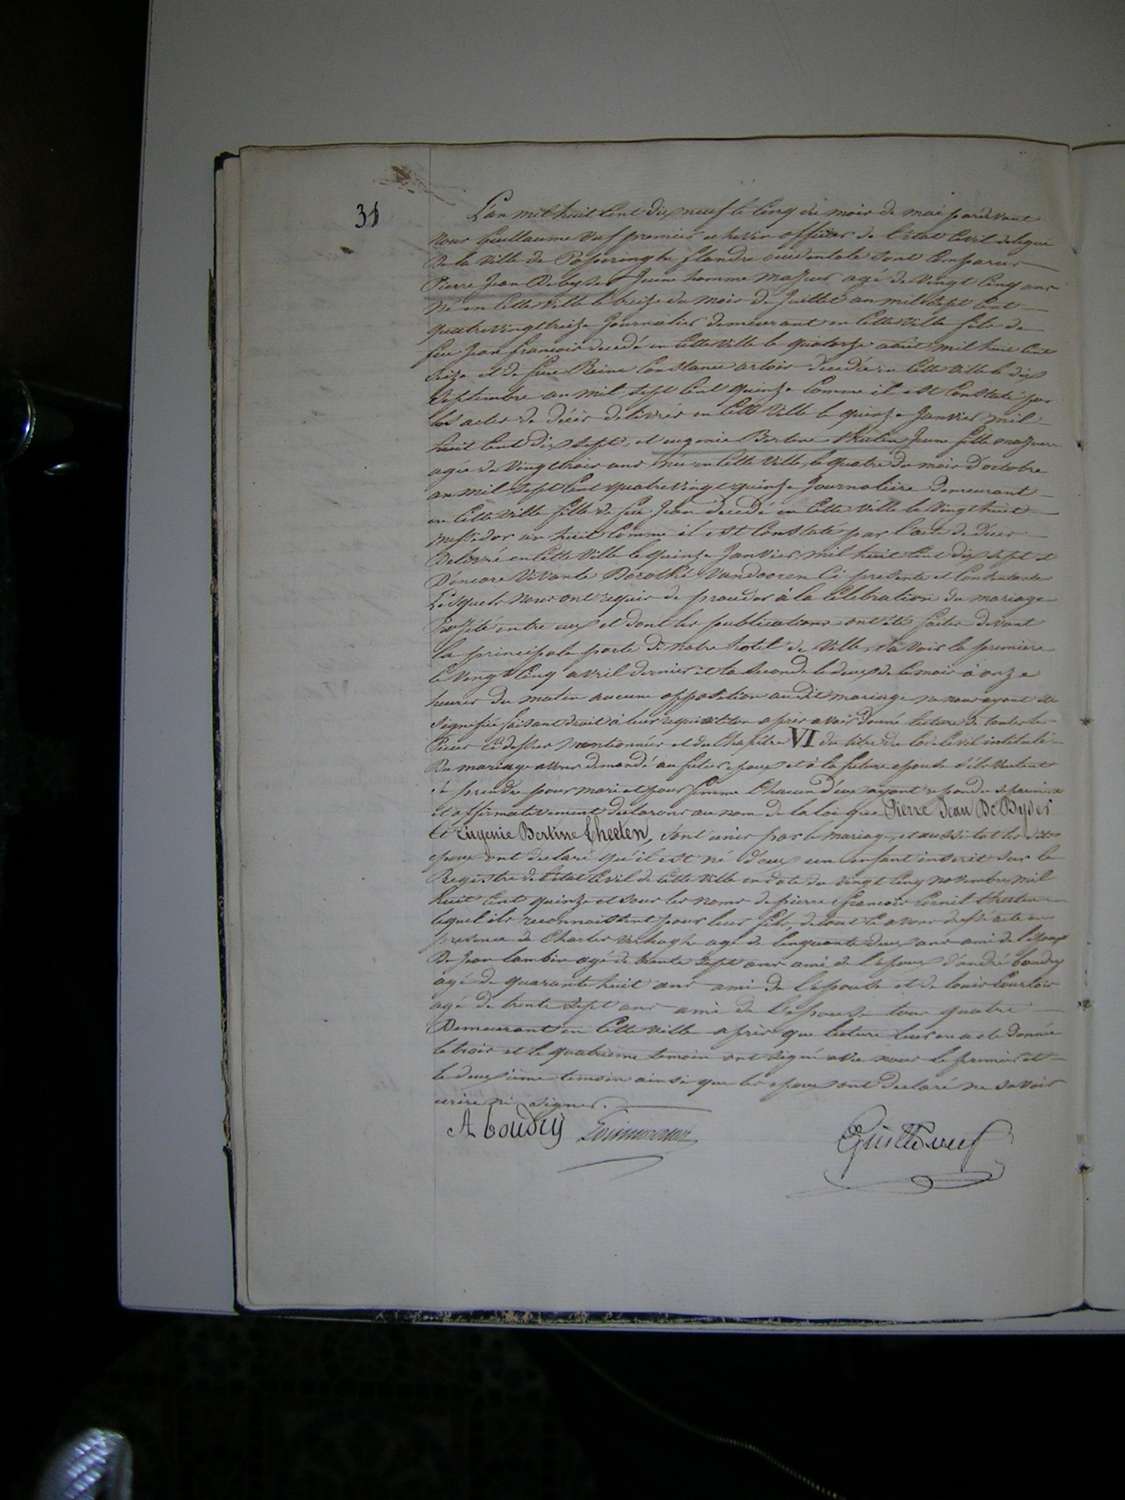 31
L'an mil huit Cent dix neuf le Cinq du mois de mai pardevant
nous Guillaume premier echevin officier de l'etat Civil delegué
de la ville de Poperinghe flandre occidentale sont Comparus
Pierre Jean Debyser Jeune homme majeur agé de vingt Cinq ans
né en Cette ville le treize du mois de Juillet an mil sept Cent
quatrevingt treize Journalier demeurant en Cette ville fils de
feu Jean francois decedé en Cette ville le quatorze août mil huit Cent
seize et de feue Reine Constance decedée en Cette ville le dix
septembre an mil sept Cent quinze Comme il est Constaté par
les actes de décès delivrés en Cette ville le quinze Janvier mil
huit Cent dix sept, et eugenie Bertine Theeten Jeune fille majeure
agée de vingt trois ans née en Cette ville le quatre du mois d'octobre
an mil sept Cent quatrevingt quinze Journaliere demeurant
en Cette ville fille de feu Jean decedé en Cette ville le vingt huit
messidor an huit Comme il est Constaté par l'acte de décès
delivré en Cette ville le quinze Janvier mil huit Cent dix sept et
d'encore vivante Dorothé Vandooren Ci presente et Consentante
Lesquels nous ont requis de proceder à la Celebration du mariage
projeté entre eux et dont les publications ont été faites devant
la principale porte de notre hotel de ville, savoir la premiere
le vingt Cinq avril dernier et la seconde le deux de Ce mois à onze
heures du matin aucune opposition au dit mariage ne nous ayant été
signifiée faisant droit à leur requisition après avoir donné lecture de toutes les
Pieces Ci dessus mentionnées et du Chapitre VI du titre du Code Civil intitulé
Du mariage avons demandé au futur epoux et à la future epouse s'ils veulent
se prendre pour mari et pour femme Chacun d'eux ayant repondu separement
et affirmativement declarons au nom de la loi que Pierre Jean De Byser
Et Eugenie Bertine Theeten, sont unis par le mariage, et aussitôt les dits
epoux ont declaré qu'il est né d'eux un enfant inscrit sur le
Registre de l'etat Civil de Cette ville en date du vingt Cinq novembre mil
huit Cent quinze et sous les noms de pierre francois Cornil theeten
lequel ils reconnaissent pour leur fils, de tout Ce avons dressé acte en
presence de Charles Verhaghe agé de Cinquante deux ans ami de l'epoux
de Jean Lambin agé de trente sept ans ami de l'epoux d'andré boudry
agé de quarante huit ans ami de l'epouse et de louis
agé de trente sept ans ami de l'epouse tous quatre
Demeurant en Cette ville après que lecture leur en a été donnée
le trois et le quatrieme temoin ont signé avec nous le premier et
le deuxieme temoin ainsi que les epoux ont declaré ne savoir
ecrire ni signer.
A boudry